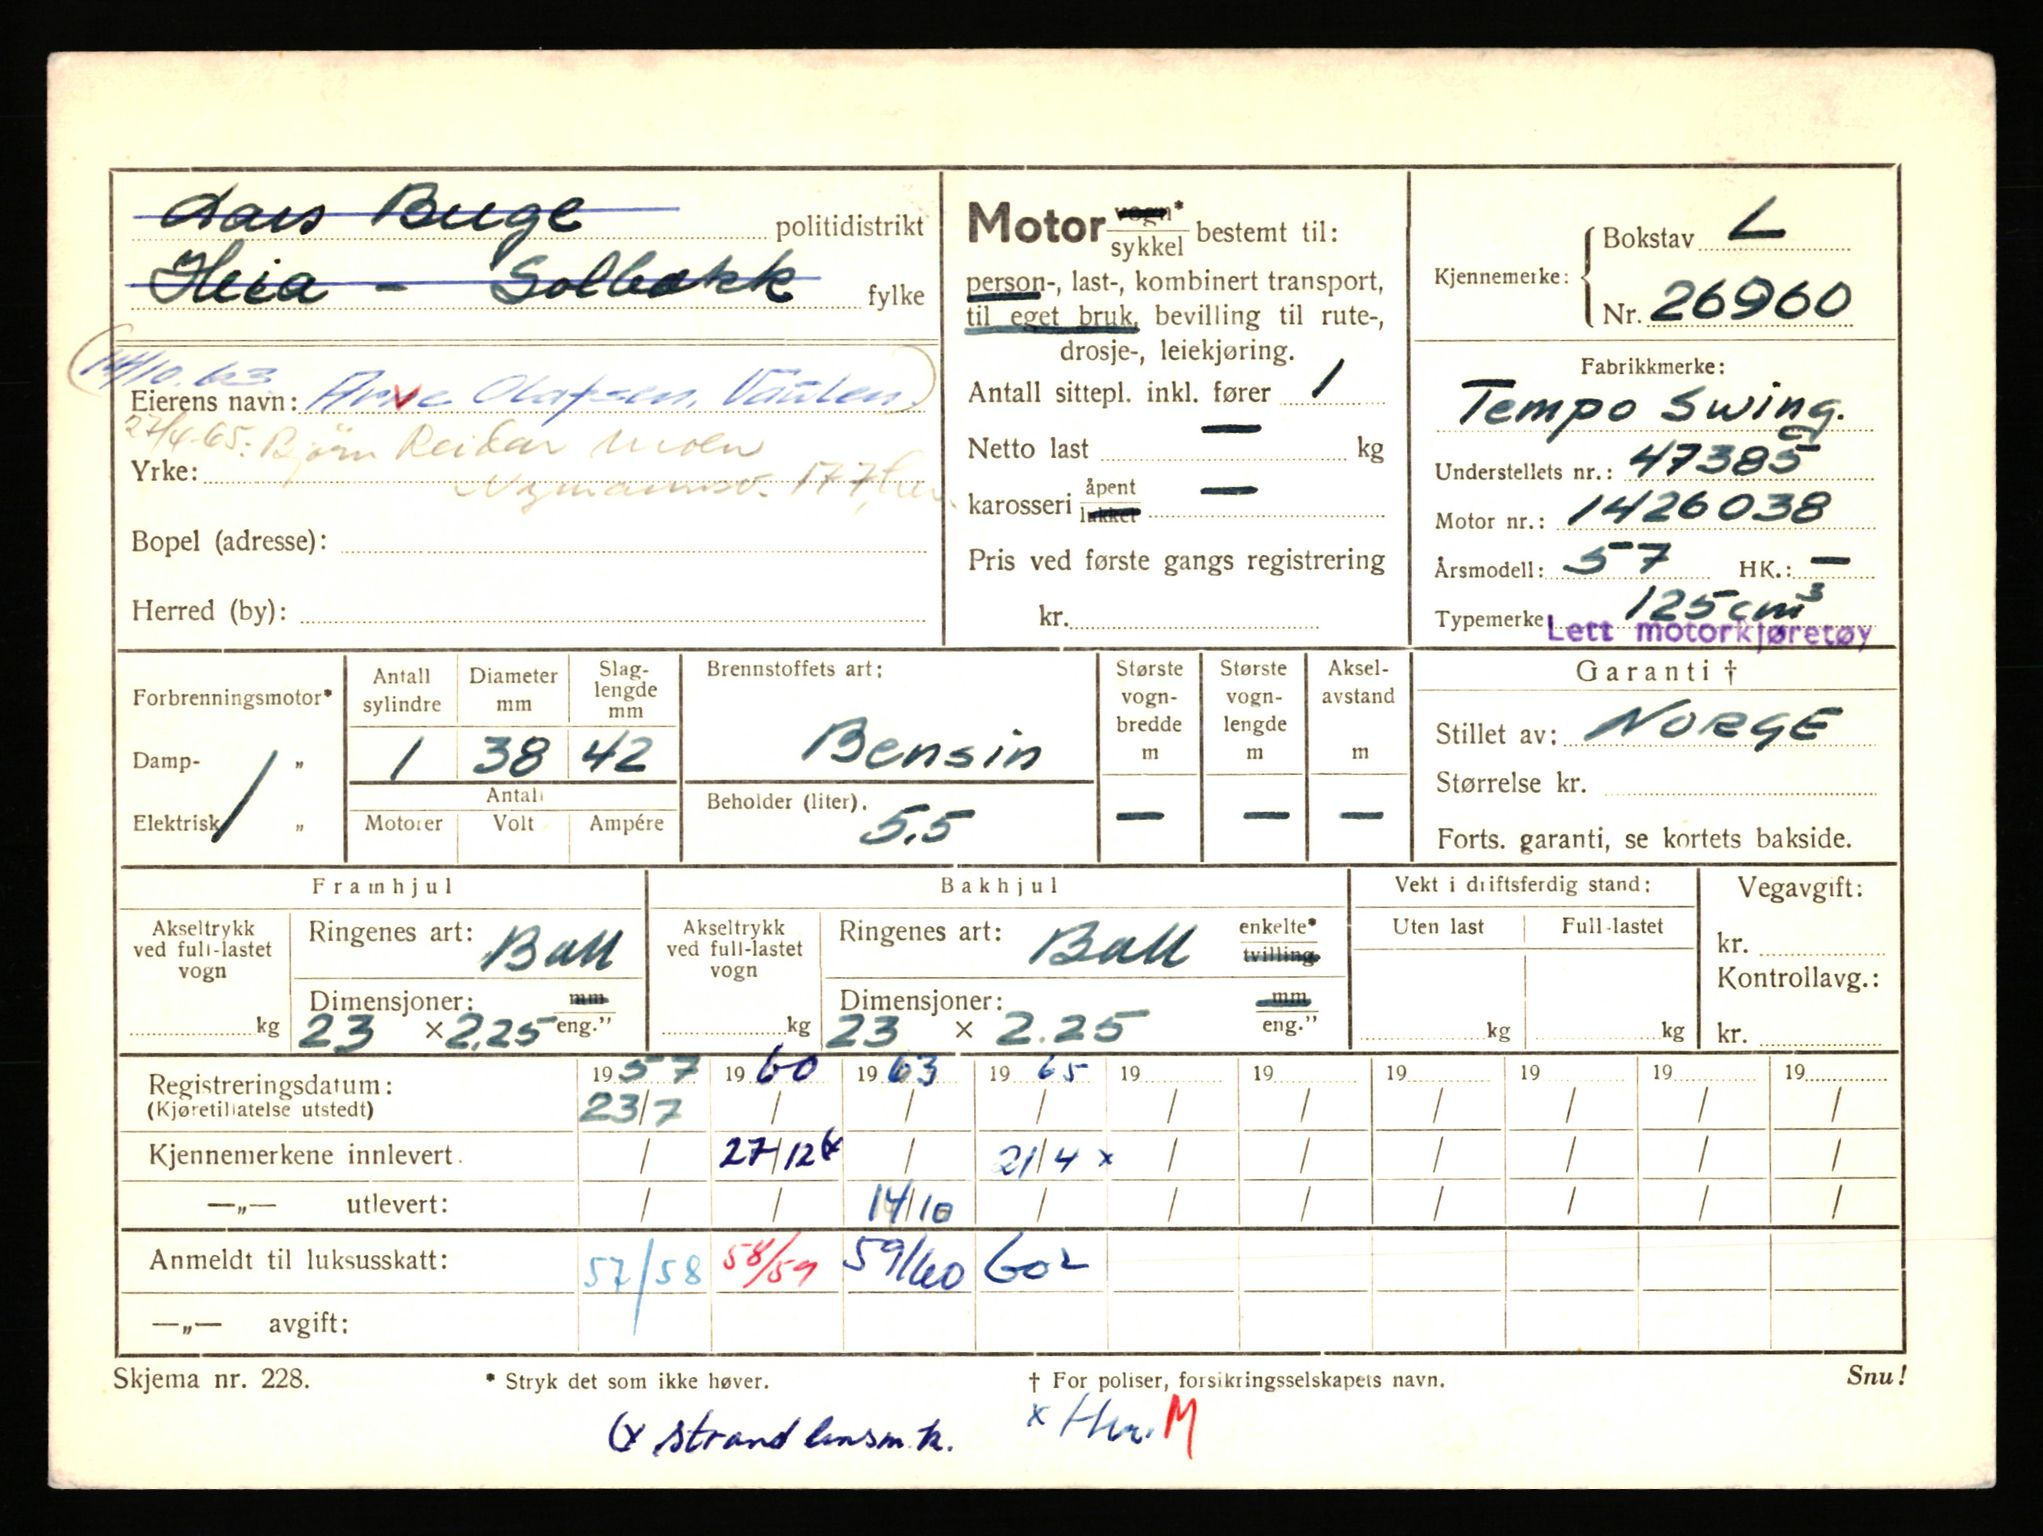 Lars Buge politidistrikt
Heia - Solbakk fylke
14/10.63
Eierens navn: Arne Olafsen, Vaulen.
27/4-65: Björn Reidar Moen
Yrke:
177,
Bopel (adresse):
Herred (by):
Motor vogn* sykkel bestemt til:
person-, last-, kombinert transport,
til eget bruk, bevilling til rute-,
drosje-, leiekjøring.
Antall sittepl. inkl. fører 1
Netto last — kg
karosseri åpent lukket —
Pris ved første gangs registrering
kr.
Kjennemerke: Bokstav L
Nr. 26960
Fabrikkmerke:
Tempo Swing.
Understellets nr.: 47385
Motor nr.: 1426038
Årsmodell: 57 HK.: —
Typemerke 125 cm³
Lett motorkjøretøy
Forbrenningsmotor*
Damp- „
Elektrisk „
Antall sylindre Diameter mm Slag-lengde mm
1 38 42
Antall
Motorer Volt Ampére
Brennstoffets art:
Bensin
Beholder (liter).
5,5
Største vogn-bredde m Største vogn-lengde m Aksel-avstand m
— — —
Garanti †
Stillet av: NORGE
Størrelse kr.
Forts. garanti, se kortets bakside.
Framhjul
Akseltrykk ved full-lastet vogn
kg
Ringenes art: Ball
Dimensjoner: mm
23 × 2.25 eng.”
Bakhjul
Akseltrykk ved full-lastet vogn
kg
Ringenes art: Ball enkelte* tvilling.
Dimensjoner: mm
23 × 2.25 eng.”
Vekt i driftsferdig stand:
Uten last Full-lastet
kg kg
Vegavgift:
kr.
Kontrollavg.:
kr.
Registreringsdatum: 1957 1960 1963 1965 19 19 19 19 19 19
(Kjøretillatelse utstedt) 23/7 / / / / / / / / /
Kjennemerkene innlevert. / 27/12 (x / 21/4 x / / / / / /
—„— utlevert: / / 14/10 / / / / / / /
Anmeldt til luksusskatt: 57/58 58/59 59/60 602
—„— avgift:
Skjema nr. 228. * Stryk det som ikke høver. † For poliser, forsikringsselskapets navn. Snu!
(x Strand lensm.k. x M